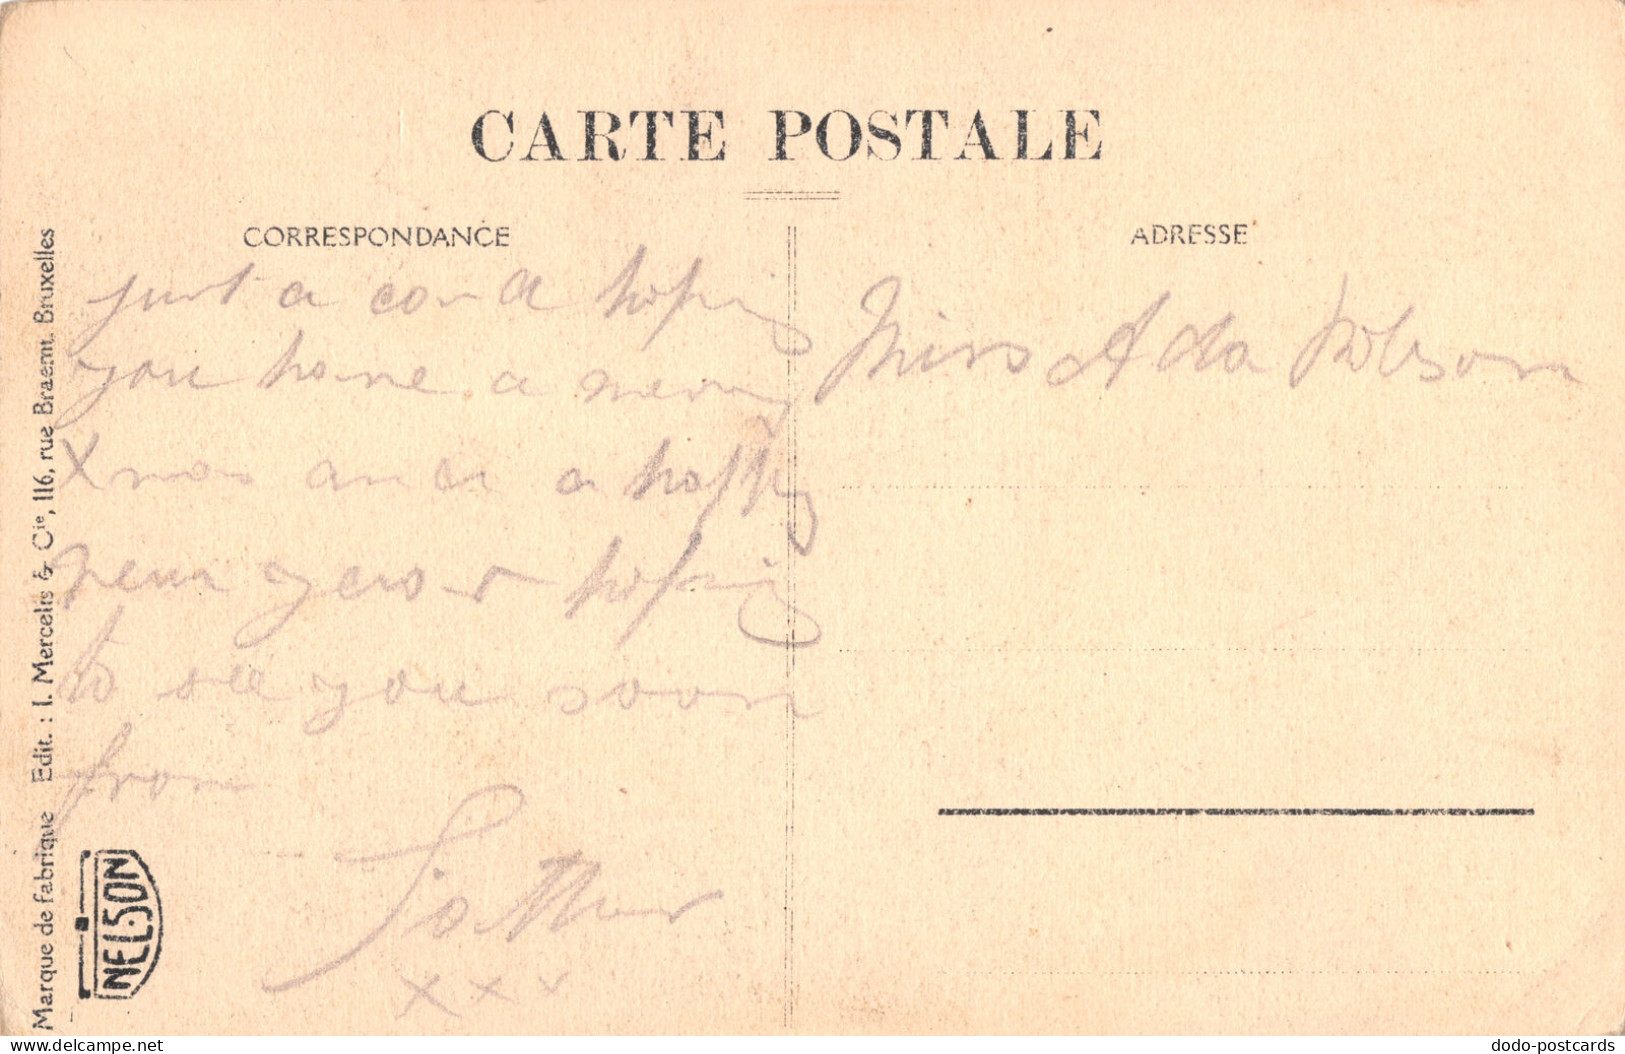 CARTE POSTALE
CORRESPONDANCE
ADRESSE
just a card hoping
you have a merry
Xmas and a happy
new year hoping
to see you soon
from
Father
x x x
Miss Ada Robson
Marque de fabrique Edit. : I. Mercelis & Cie, 116, rue Braemt. Bruxelles
NELSON
delcampe.net
dodo-postcards